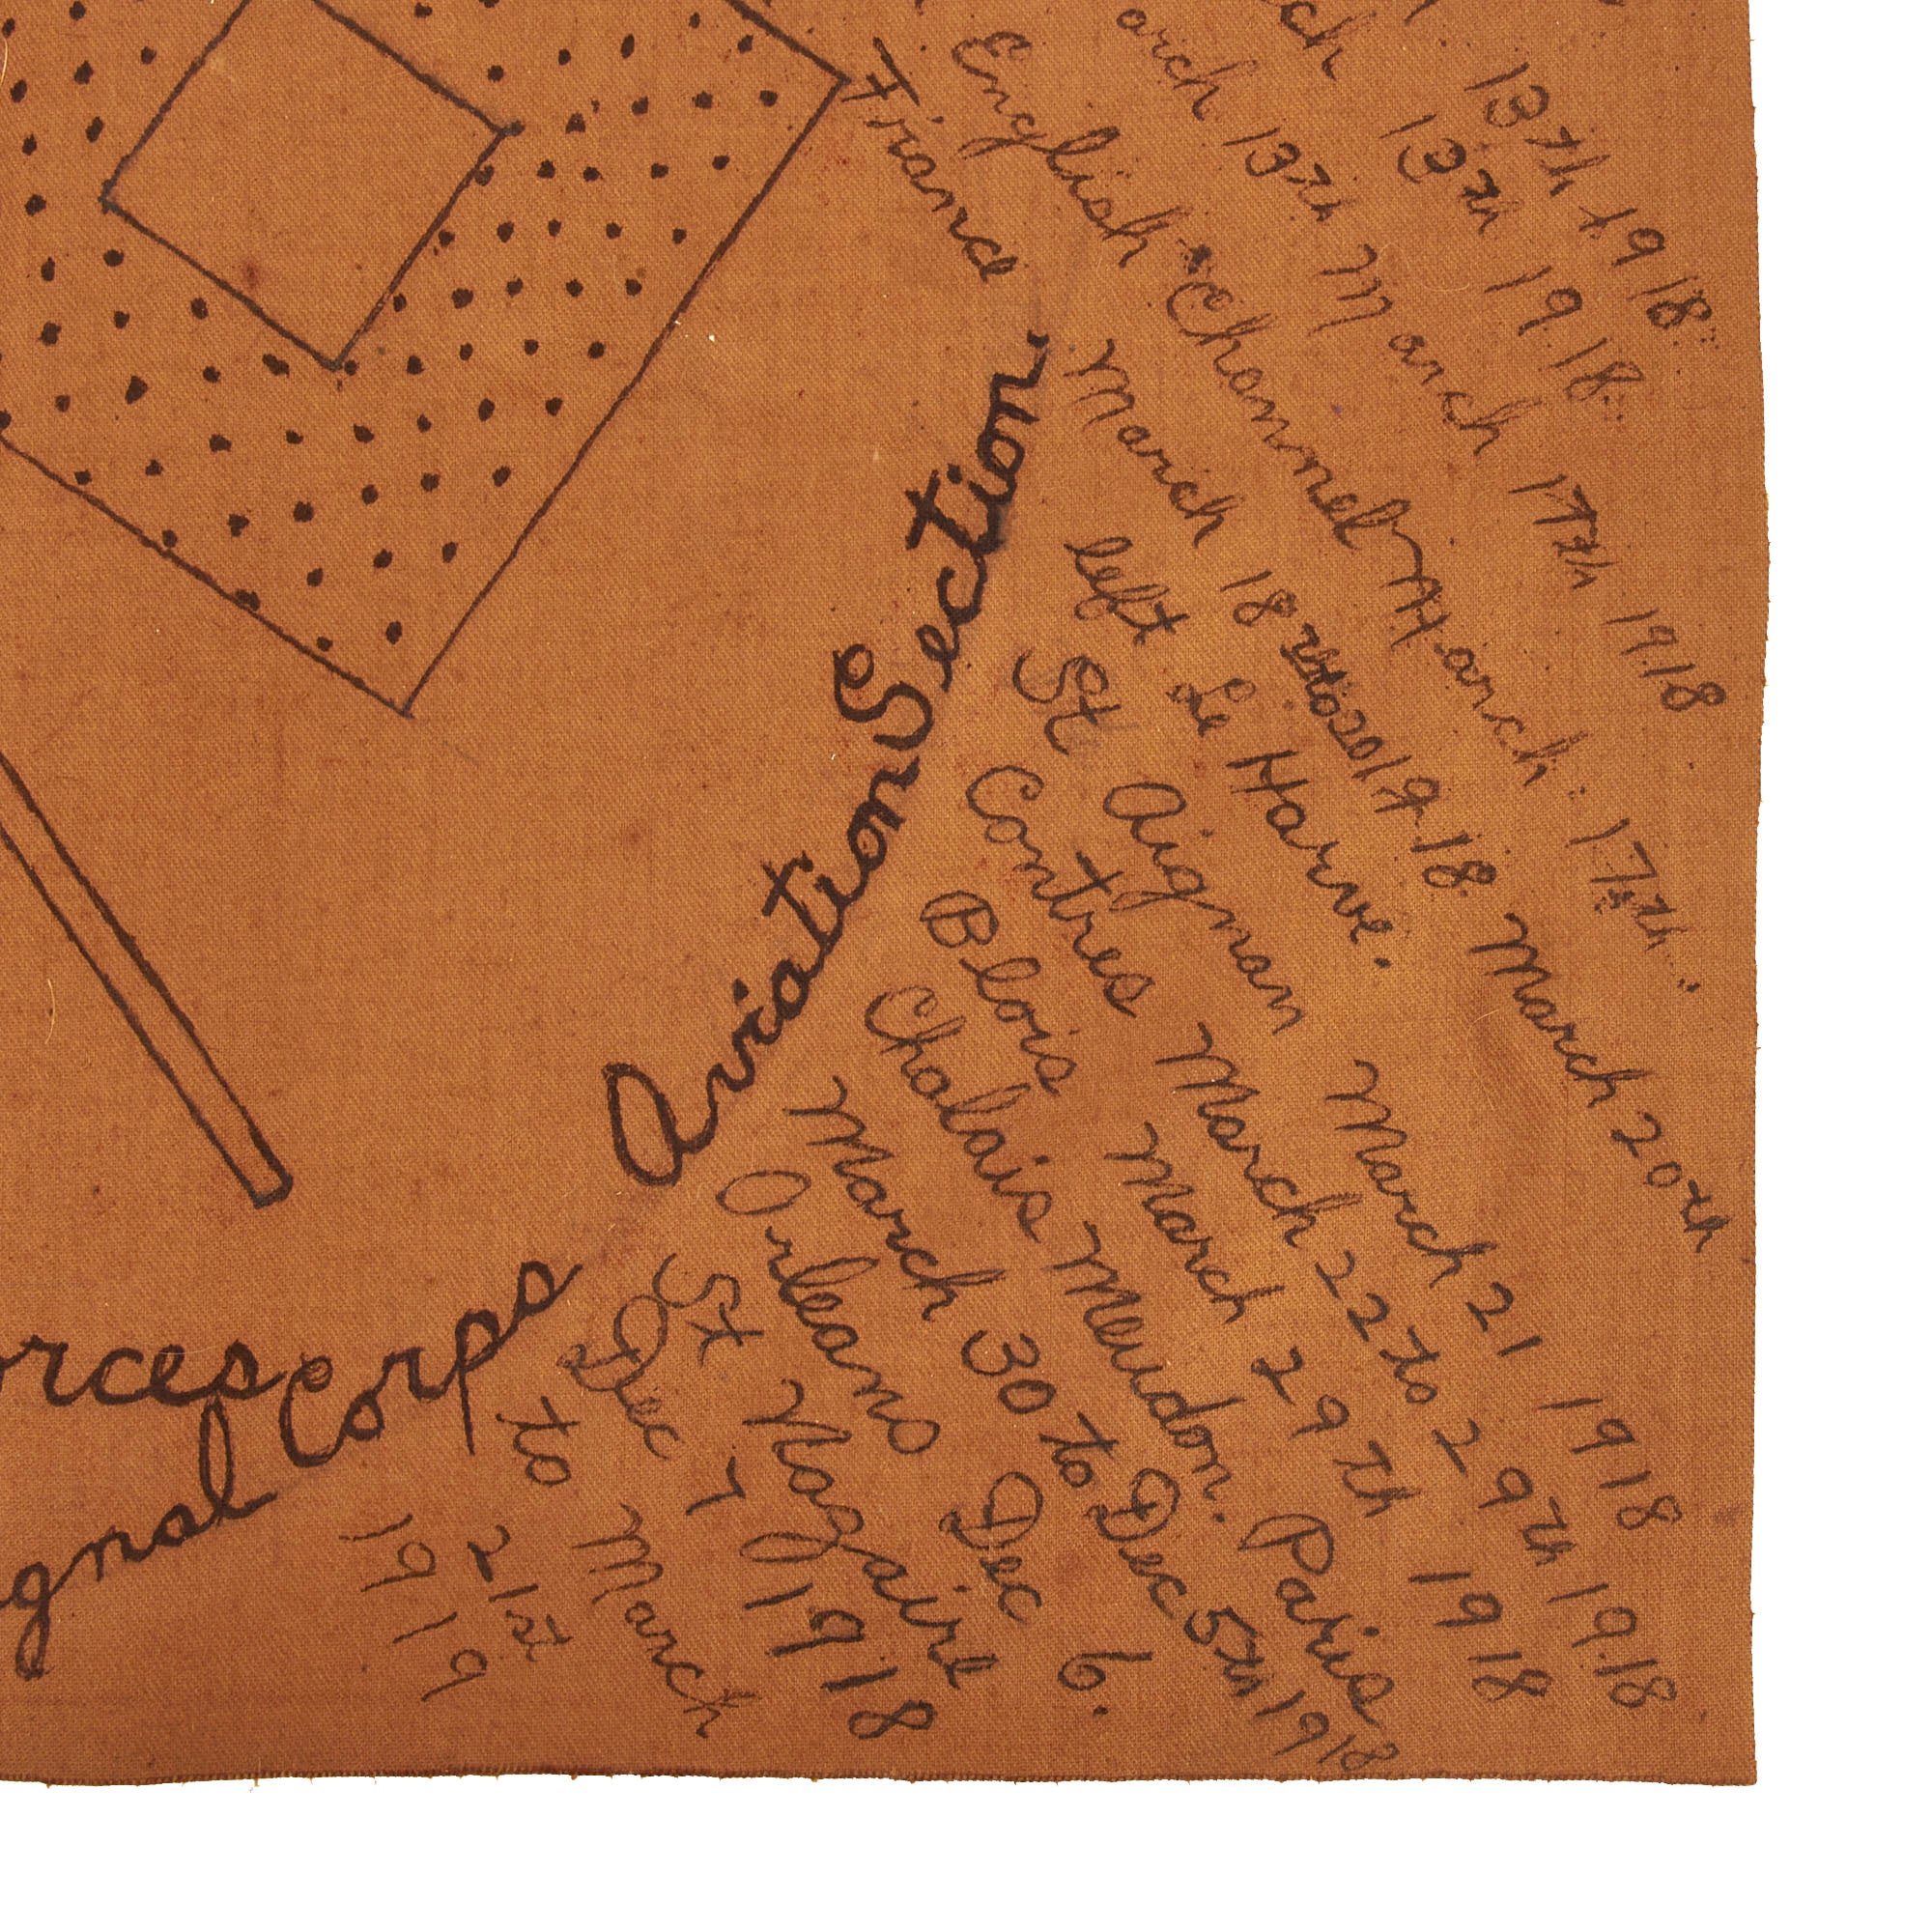 13th 1918
ch 13th 1918
arch 13th March 17th 1918
English Channel March 17th
France
March 18 1918 March 20th
left Le Harve.
St Aignan March 21 1918
Contres March 22 to 29th 1918
Blois March 29th 1918
Chalais Meudon. Paris
March 30 to Dec 5th 1918
Orleans Dec 6.
St Nazaire
Dec 7 1918
to March
21st
1919
Aviation Section
orces Corps
gnal